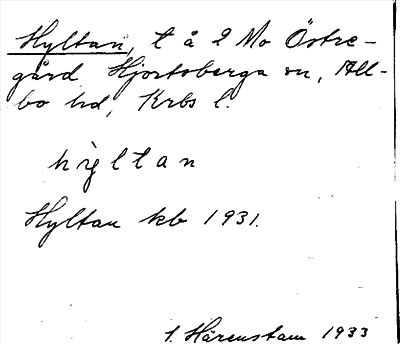 Hyltan, t å 2 Mo Östre-
gård Hjortsberga sn, All-
bo hd, Krbs l.
hỳltan
Hyltan kb 1931.
1. Härenstam 1933